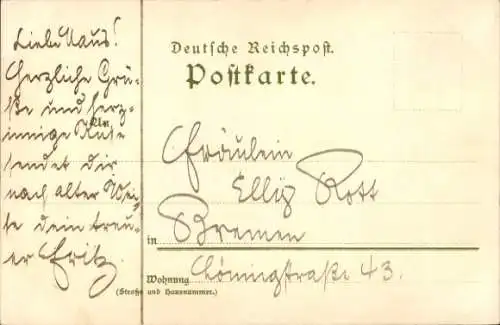 Liebe Maus!
Herzliche Grü-
ße und herz-
innige Küsse
sendet dir
nach alter Wei-
se dein treu-
er Fritz.
Deutsche Reichspost.
Postkarte.
Fräulein
Elliz Rott
in Bremen
Wohnung Löningstraße 43.
(Straße und Hausnummer.)